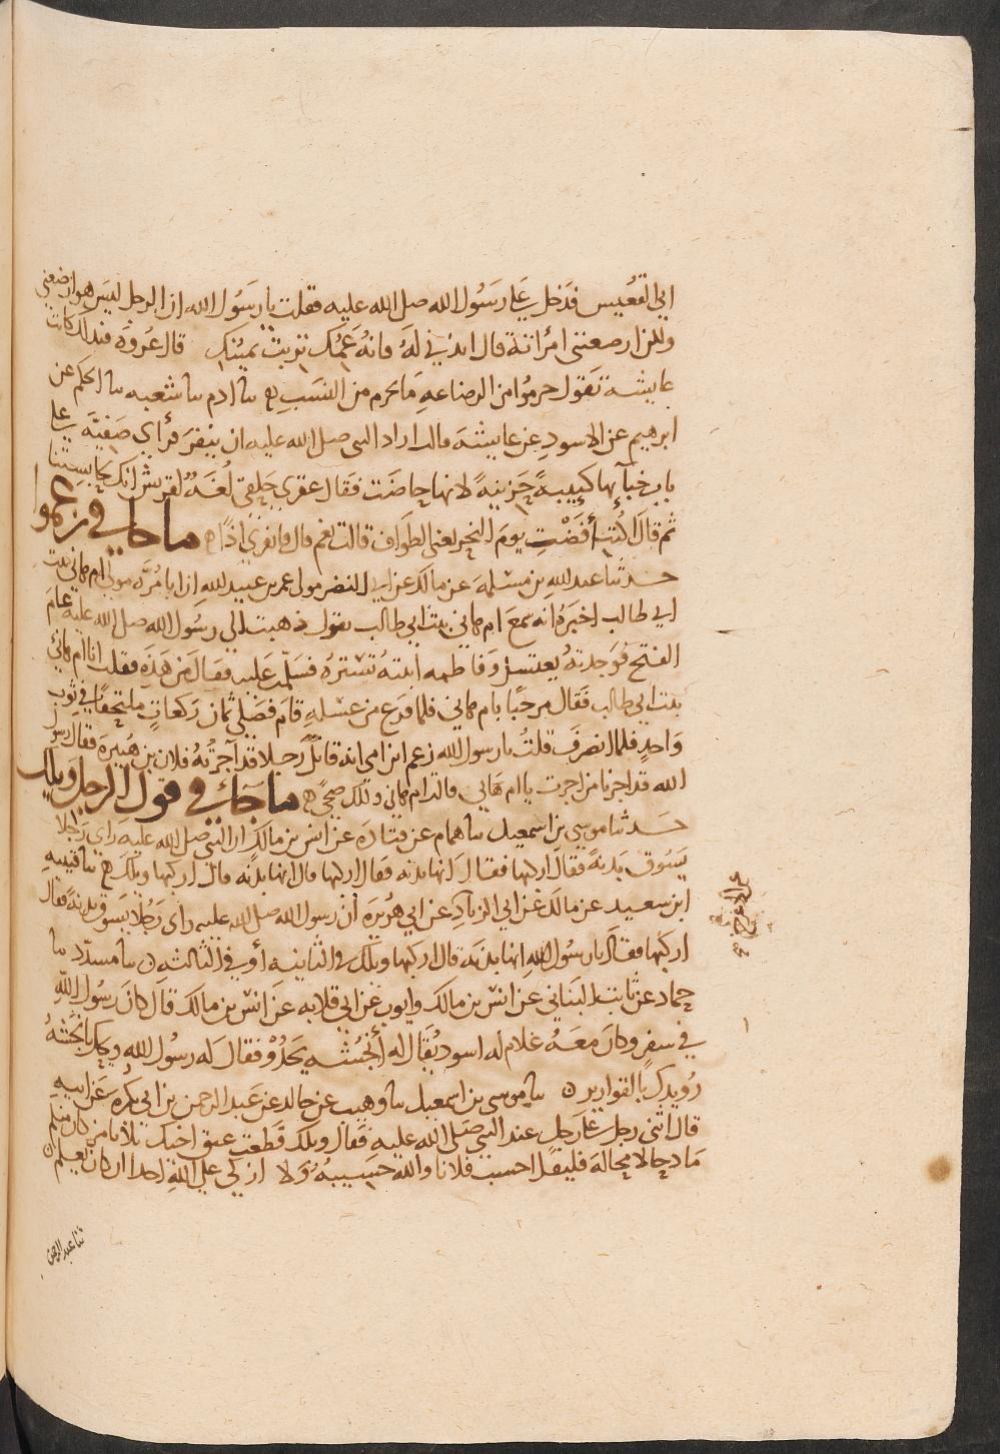 ابي القعيس فدخل علي رسول الله صلى الله عليه فقلت يا رسول الله ان الرجل ليس هو ارضعني
ولكن ارضعتني امرأته قال ائذني له فانه عمك تربت يمينك قال عروة فبذلك كانت
عايشة تقول حرموا من الرضاعة ما يحرم من النسب ه سا ادم سا شعبه سا الحكم عن
ابرهيم عن الاسود عن عايشة قالت اراد النبي صلى الله عليه ان ينفر فرأى صفية على
باب خبآيها كييبةً حزينةً لانها حاضت فقال عقرى حلقى لغةٌ لقريش انك لحابستنا
ثم قال أكنت أفضت يوم النحر يعني الطواف قالت نعم قال فانفري اذًا ه ما جا في زعموا
حدثنا عبد الله بن مسلمة عن مالك عن ابي النضر مولى عمر بن عبيد الله ان ابا مُرَّة مولى ام هاني بنت
ابي طالب اخبره انه سمع ام هاني بنت ابي طالب تقول ذهبت الى رسول الله صلى الله عليه عام
الفتح فوجدته يغتسل وفاطمة ابنته تستره فسلمت عليه فقال من هذه فقلت انا ام هاني
بنت ابي طالب فقال مرحبًا بام هاني فلما فرغ من غسله قام فصلى ثمان ركعاتٍ ملتحفًا في ثوب
واحدٍ فلما انصرف قلتُ يا رسول الله زعم ابن امي انه قاتلٌ رجلا قد آجرتُهُ فلان بن هُبيرة فقال رسول
الله قد اجرنا من اجرت يا ام هاني قالت ام هاني وذلك ضحًى ه ما جاء في قول الرجل ويلك
حدثنا موسى بن اسمعيل سا همام عن قتادة عن انس بن مالك ان النبي صلى الله عليه راى رجلا
يسوق بدنةً فقال اركبها فقال انها بدنه فقال اركبها قال انها بدنه قال اركبها ويلك ه سا قتيبه
ابن سعيد عن مالك عن ابي الزناد عن ابي هريرة أن رسول الله صلى الله عليه راى رجلا يسوق بدنةً فقال
اركبها فقال يا رسول الله انها بدنه قال اركبها ويلك في الثانيه أو في الثالثه ن سا مسدّد سا
حماد عن ثابت البناني عن انس بن مالك وايوب عن ابي قلابه عن انس بن مالك قال كان رسول الله
في سفر وكان معه غلام له اسود يُقال له أنجشه يحدو فقال له رسول الله ويحك يا أنجشةُ
رُويدك بالقوارير ن سا موسى بن اسمعيل سا وهيب عن خالد عن عبد الرحمن بن ابي بكره عن ابيه
قال اثنى رجل على رجل عند النبي صلى الله عليه فقال ويلك قطعت عنق اخيك ثلاثا من كان منكم
مادحا لا محالة فليقل احسب فلانا والله حسيبهُ ولا ازكي على الله احدا ان كان يعلم ن
ثنا عبد الرحمن